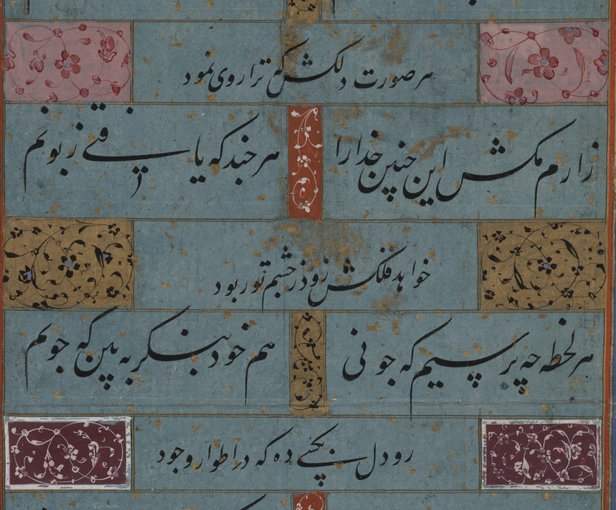 هر صورت دلکش که ترا روی نمود
زارم مکش این چنین خدا را هر چند که یافتی زبونم
خواهد فلکش زود ز چشم تو ربود
هر لحظه چه پرسیم که چونی هم خود بنگر به بین که چونم
رو دل بکسی ده که در اطوار وجود